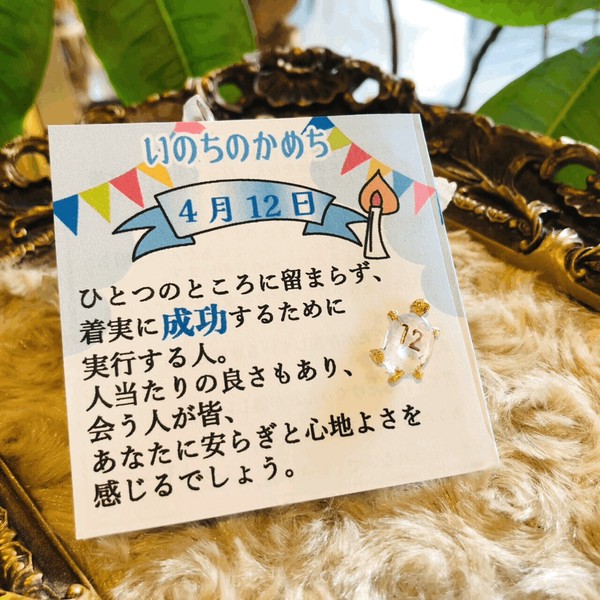 いのちのかめち
4月12日
ひとつのところに留まらず、
着実に成功するために
実行する人。
人当たりの良さもあり、
会う人が皆、
あなたに安らぎと心地よさを
感じるでしょう。
12